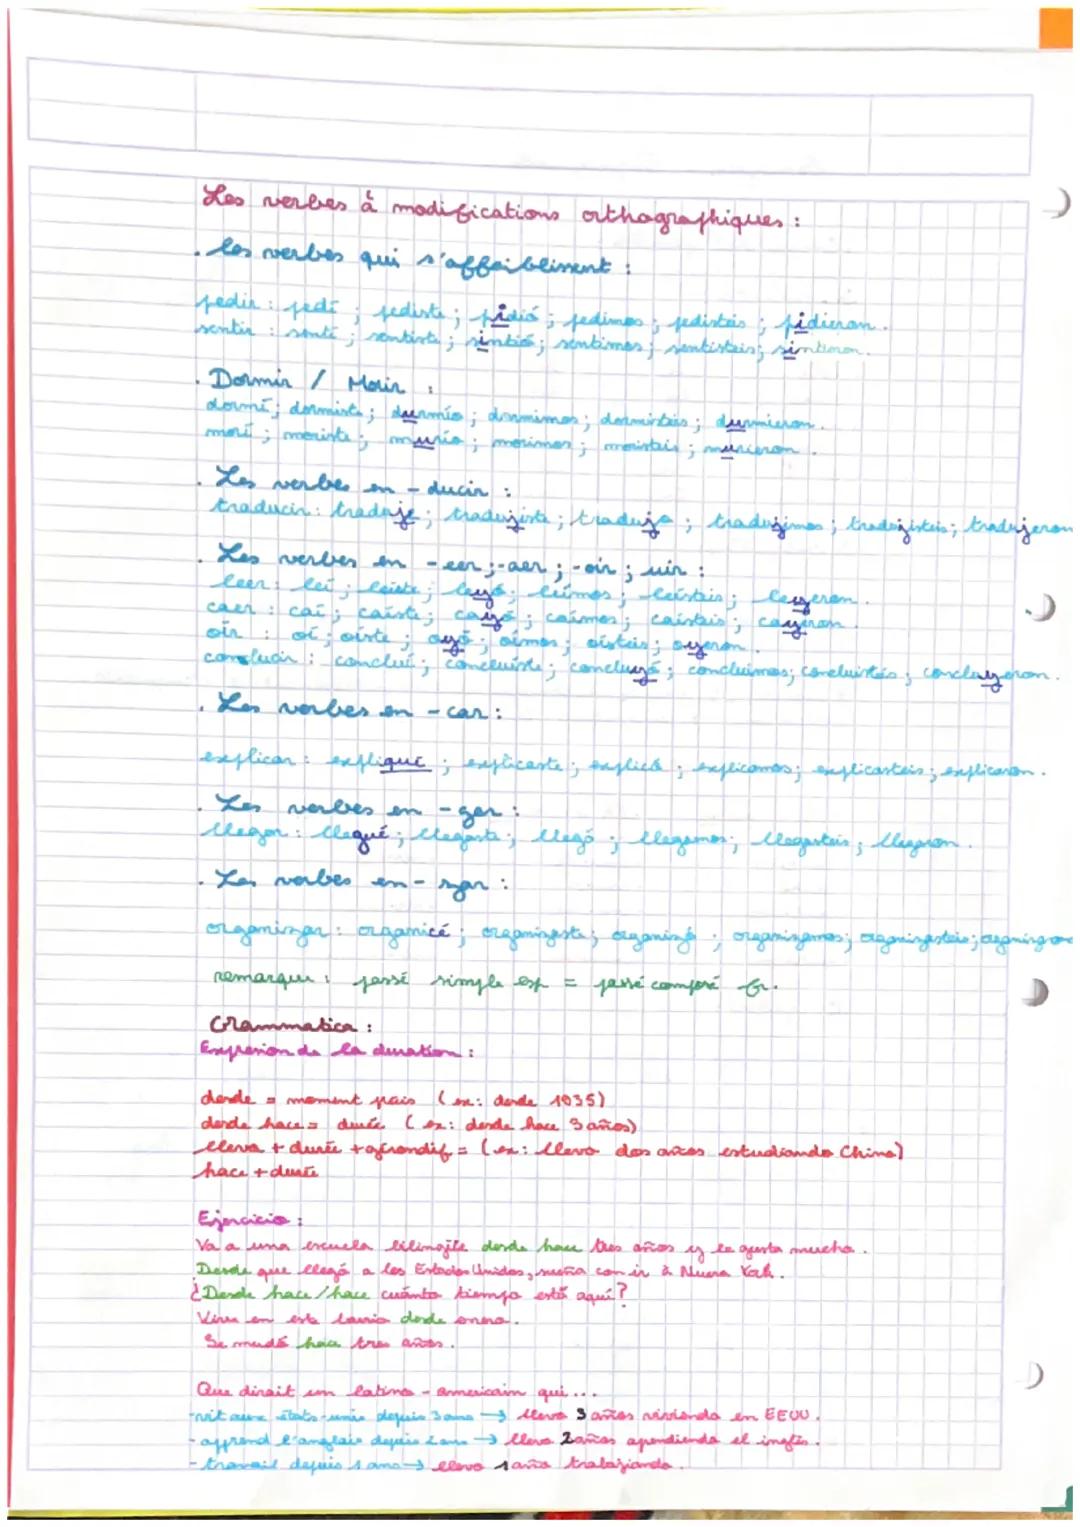 Les verbes à modifications orthographiques :
. les verbes qui s'affaiblissent :
pedir : pedí ; pediste ; pidió ; pedimos ; pedisteis ; pidieron.
sentir : sentí ; sentiste ; sintió ; sentimos ; sentisteis ; sintieron.
. Dormir / Morir :
dormí ; dormiste ; durmió ; dormimos ; dormisteis ; durmieron.
morí ; moriste ; murió ; morimos ; moristeis ; murieron.
. Les verbes en - ducir :
traducir : traduje ; tradujiste ; tradujo ; tradujimos ; tradujisteis ; tradujeron
. Les verbes en - eer ; -aer ; -oir ; uir :
leer : leí ; leíste ; leyó ; leímos ; leísteis ; leyeron.
caer : caí ; caíste ; cayó ; caímos ; caísteis ; cayeron.
oír : oí ; oíste ; oyó ; oímos ; oísteis ; oyeron.
concluir : concluí ; concluiste ; concluyó ; concluimos ; concluisteis ; concluyeron.
. Les verbes en - car :
explicar : expliqué ; explicaste ; explicó ; explicamos ; explicasteis ; explicaron.
. Les verbes en - gar :
llegar : llegué ; llegaste ; llegó ; llegamos ; llegasteis ; llegaron.
. Les verbes en - zar :
organizar : organicé ; organizaste ; organizó ; organizamos ; organizasteis ; organizaron
remarque : passé simple esp = passé composé fr.
Grammatica :
Expresion de la duration :
desde = moment précis ( ex : desde 1935)
desde hace = durée ( ex : desde hace 3 años)
lleva + durée + gérondif = ( ex : llevo dos años estudiando Chino)
hace + durée
Ejercicio :
Va a una escuela bilingüe desde hace tres años y le gusta mucho.
Desde que llegó a los Estados Unidos, sueña con ir à Nueva York.
¿Desde hace / hace cuánto tiempo está aquí?
Vive en este barrio desde enero.
Se mudó hace tres años.
Que dirait un latino - américain qui ...
- vit aux états-unis depuis 3 ans → llevo 3 años viviendo en EEUU.
- apprend l'anglais depuis 2 ans → llevo 2 años apendiendo el inglés.
- travail depuis 1 ans → llevo 1 año trabajando.